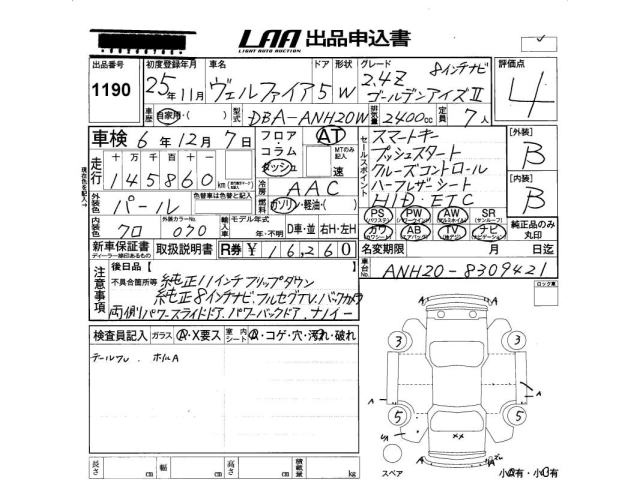 LAA 出品申込書
LIGHT AUTO AUCTION
出品番号 1190
初度登録年月 25年11月
車名 ヴェルファイア
ドア 5 形状 W
グレード 2.4Z 8インチナビ
ゴールデンアイズⅡ
評価点 4
車歴 自家用・( )
型式 DBA-ANH20W
排気量 2400cc
定員 7人
車検 6年12月7日
フロア・コラム・ダッシュ
AT
MTのみ記入 速
走行 十万千百十
145860km
冷房 AAC
燃料 ガソリン・軽油・( )
外装色 パール
色替車は色替と記入
内装色 クロ
外装カラーNo. 070
輸入車 モデル年式 年・不明
D車・並 右H・左H
新車保証書
ディーラー捺印あるもの
取扱説明書
R券 ¥16,260
セールスポイント
スマートキー
プッシュスタート
クルーズコントロール
ハーフレザーシート
HID・ETC
【外装】 B
【内装】 B
PS (パワステ) PW (パワーウインド) AW (アルミホイール) SR (サンルーフ)
カワ (ワンシート) AB (エアバック) TV (地デジ) ナビ (ナビゲーション)
純正品のみ丸印
名変期限 月 日迄
車台No. ANH20-8309421
現在色を記入→
注意事項
後日品【 】
不具合箇所等
純正11インチフリップダウン
純正8インチナビ,フルセグTV,バックカメラ
両側パワースライドドア,パワーバックドア,ナノイー
ロック車
検査員記入 ガラス A・X要ス 室内シート A・コゲ・穴・汚れ・破れ
テールワレ . ホイルA
3 3
A A
5 5
A
××
A A
スペア
小A有・小B有
長さ cm 幅 cm 高さ cm 積載量 kg